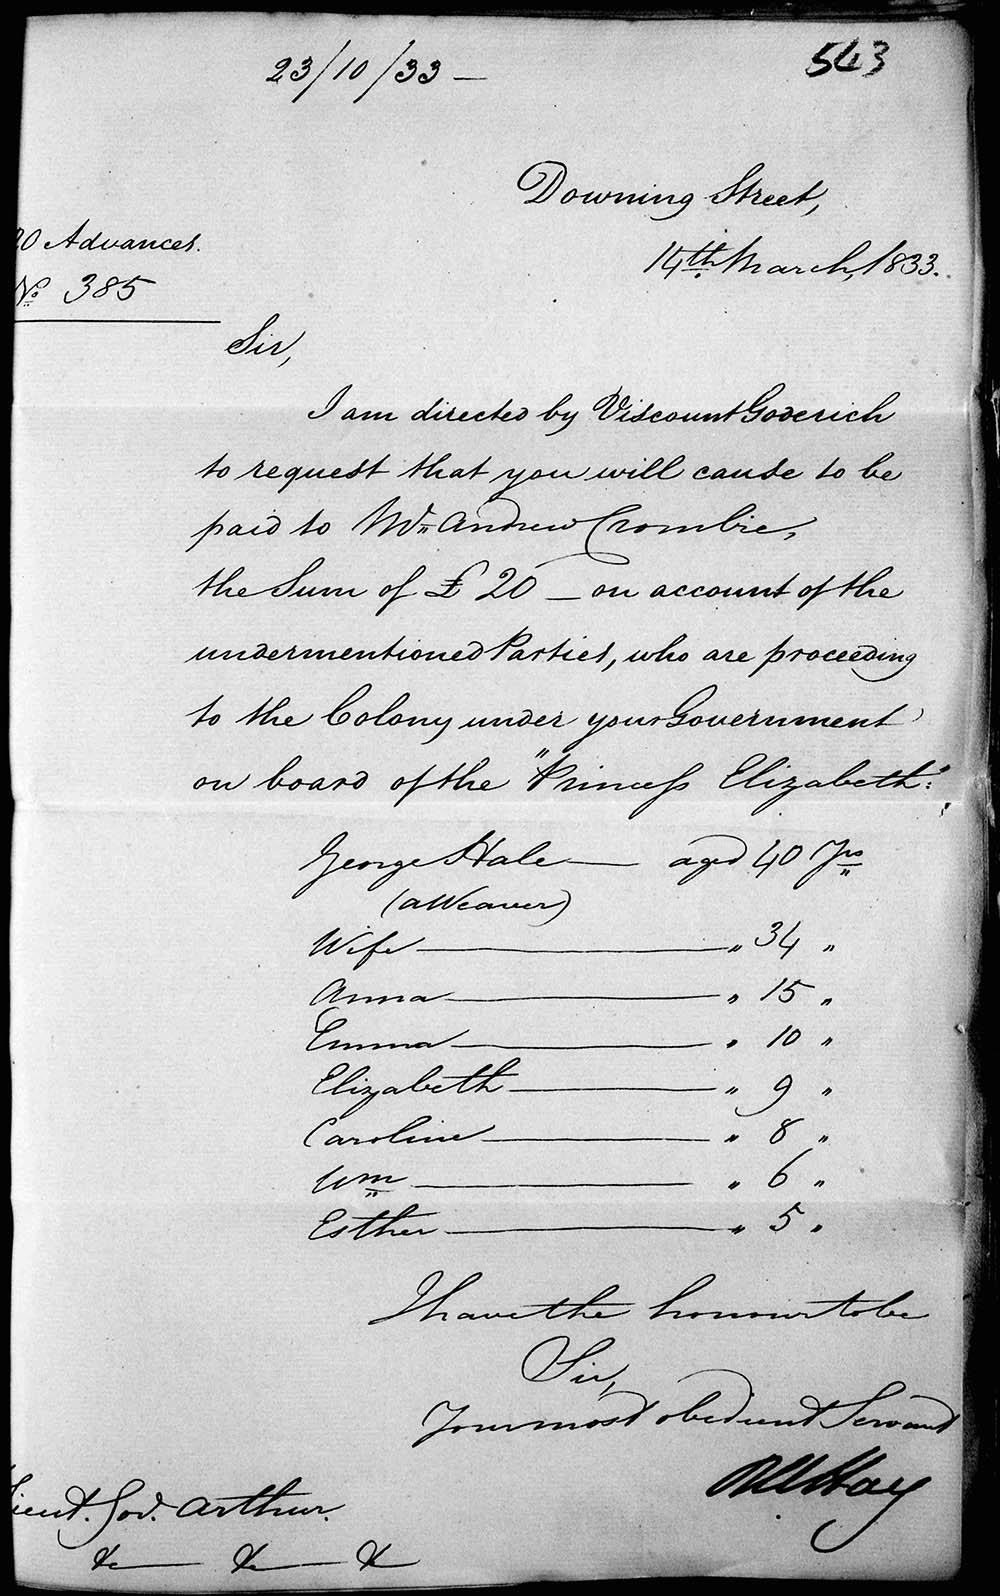 23/10/33 —
543
Downing Street,
14th March, 1833.
20 Advances.
No 385
Sir,
I am directed by Viscount Goderich
to request that you will cause to be
paid to Mr Andrew Crombie,
the Sum of £20 — on account of the
undermentioned Parties, who are proceeding
to the Colony under your Government
on board of the "Princess Elizabeth":
George Hale — aged 40 Yrs
(a Weaver)
Wife — " 34 "
Anna — " 15 "
Emma — " 10 "
Elizabeth — " 9 "
Caroline — " 8 "
Wm — " 6 "
Esther — " 5 "
I have the honour to be
Sir,
Your most obedient Servant
RW Hay
Lieut. Gov. Arthur.
&c — &c — &c